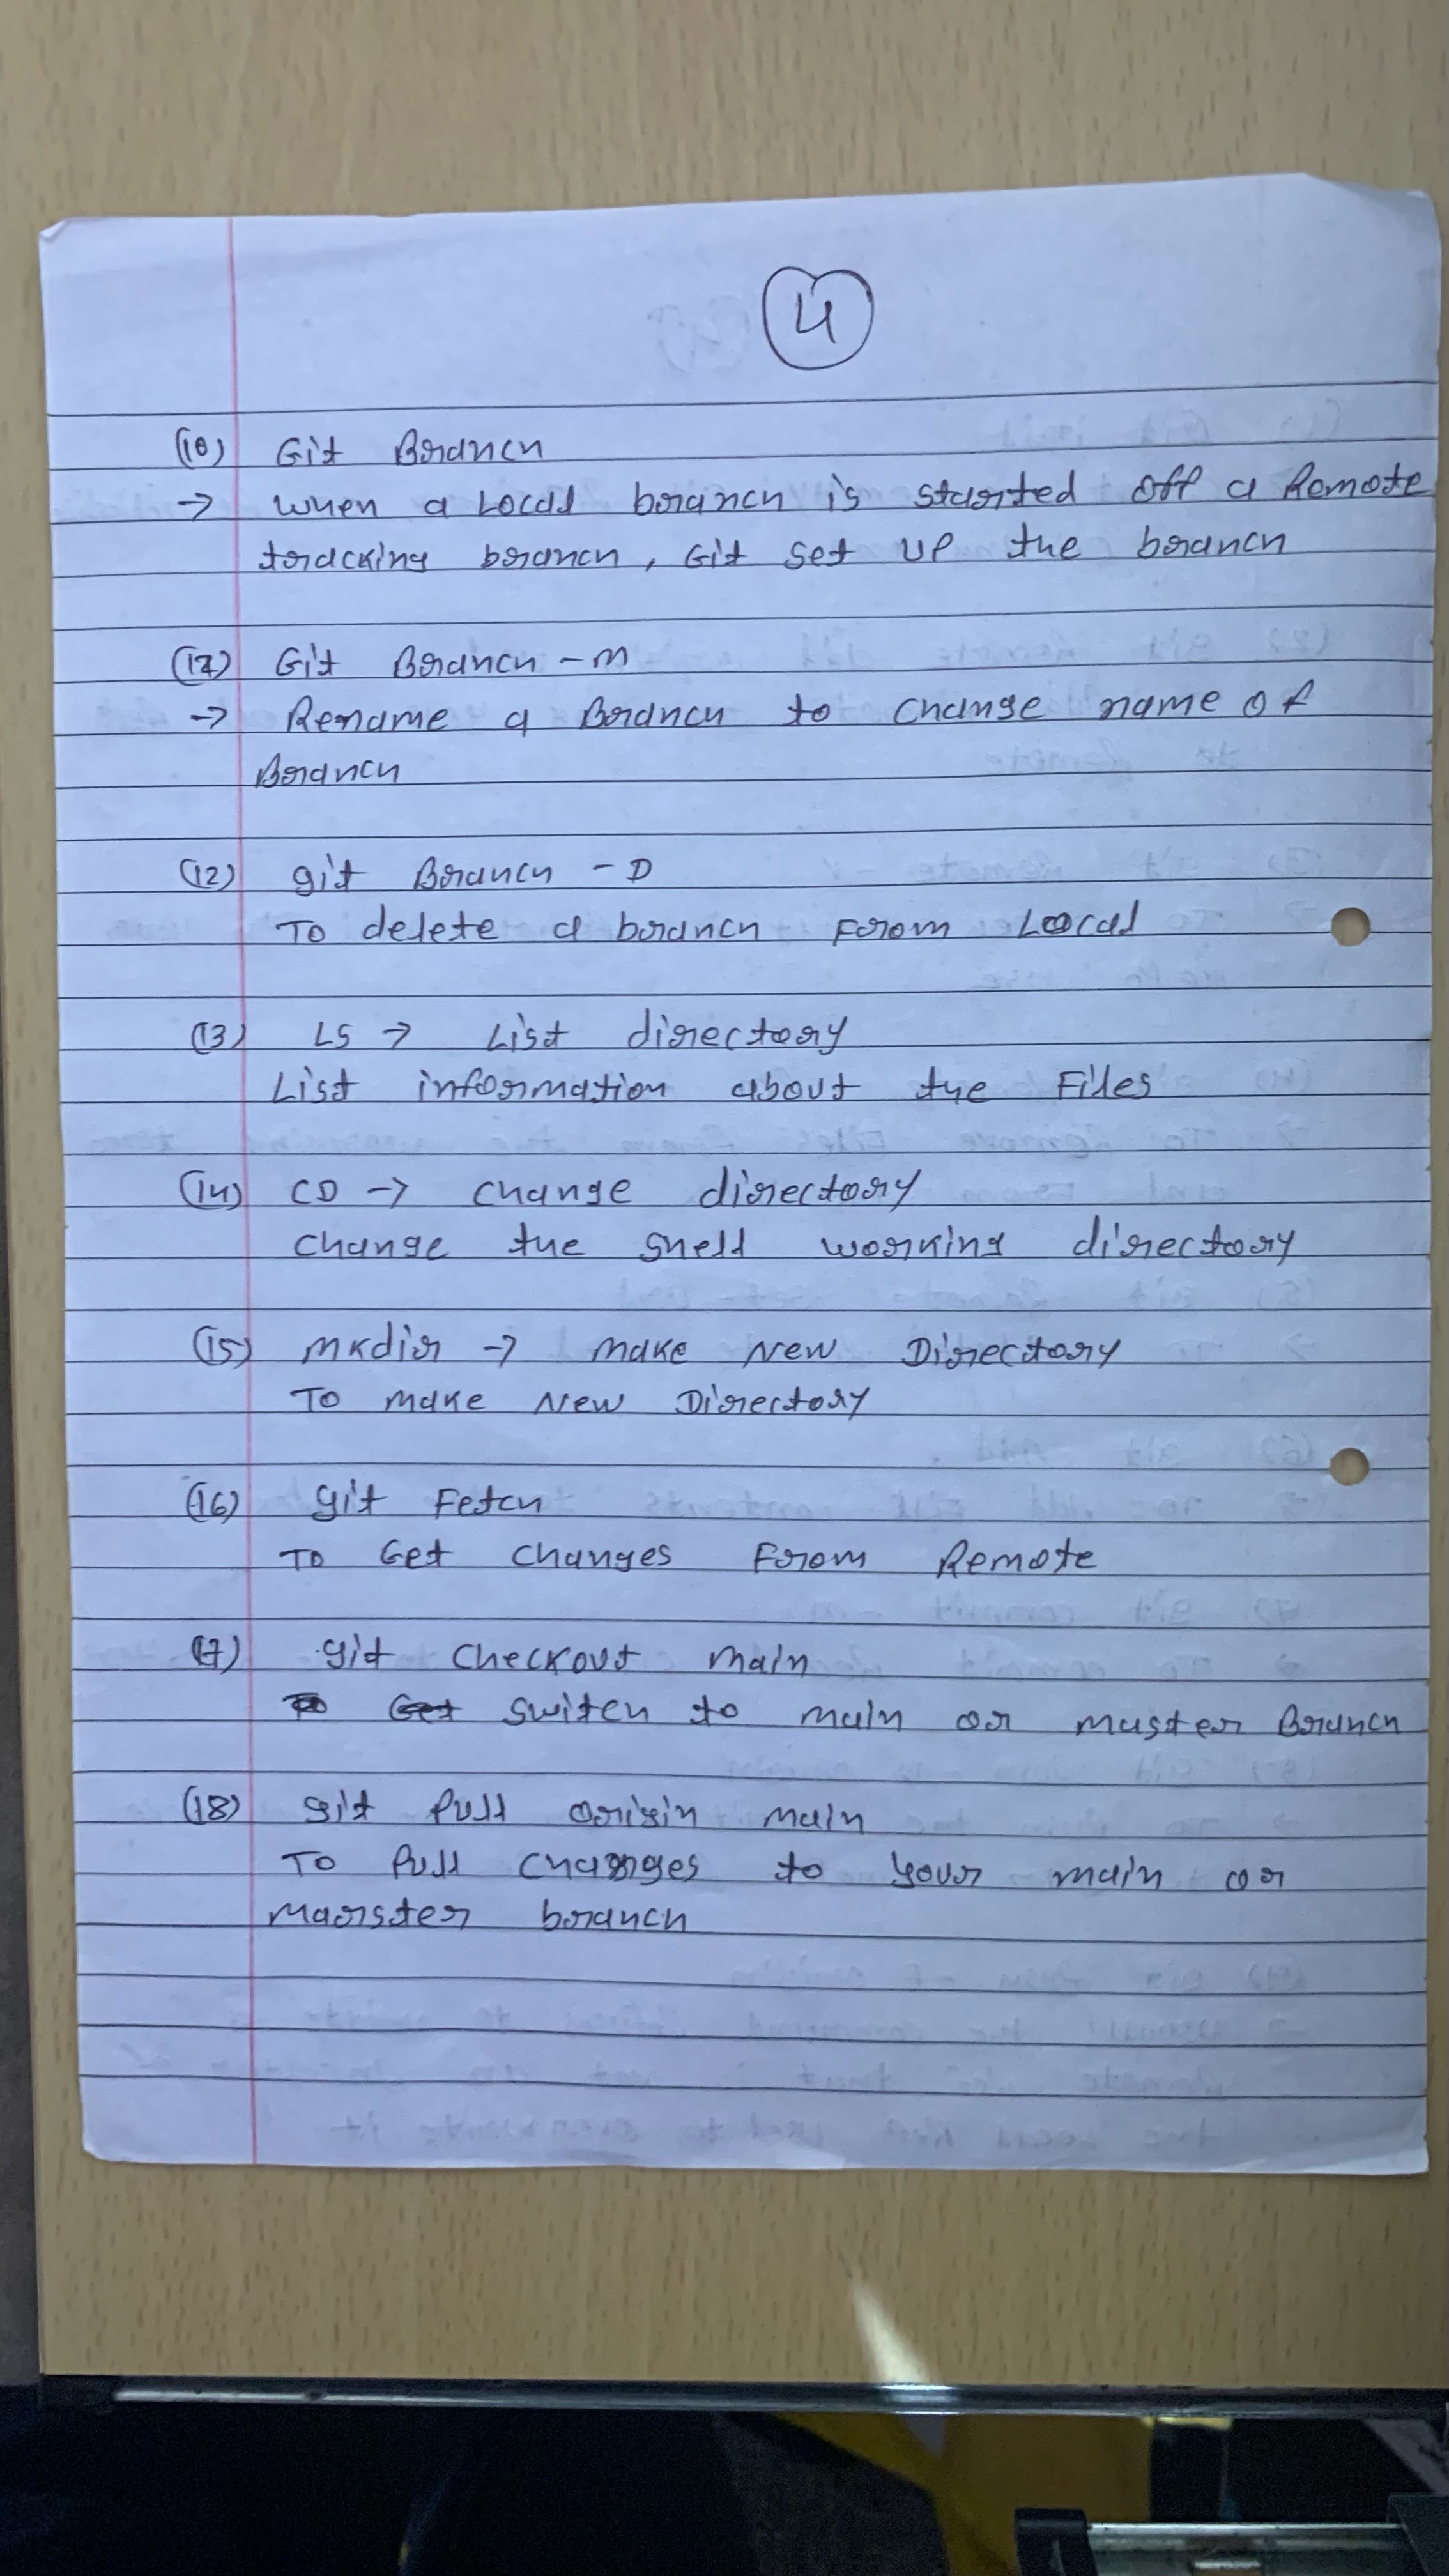 4
(10) Git Branch
→ when a Local branch is started off a Remote
tracking branch, Git set up the branch
(11) Git Branch -m
→ Rename a Branch to change name of
Branch
(12) git Branch -D
To delete a branch From Local
(13) LS → List directory
List information about the Files
(14) CD → change directory
change the shell working directory
(15) mkdir → make New Directory
To make New Directory
(16) git Fetch
To Get changes From Remote
(17) git checkout main
switch to main or master Branch
(18) git Pull origin main
To Pull changes to your main or
marster branch